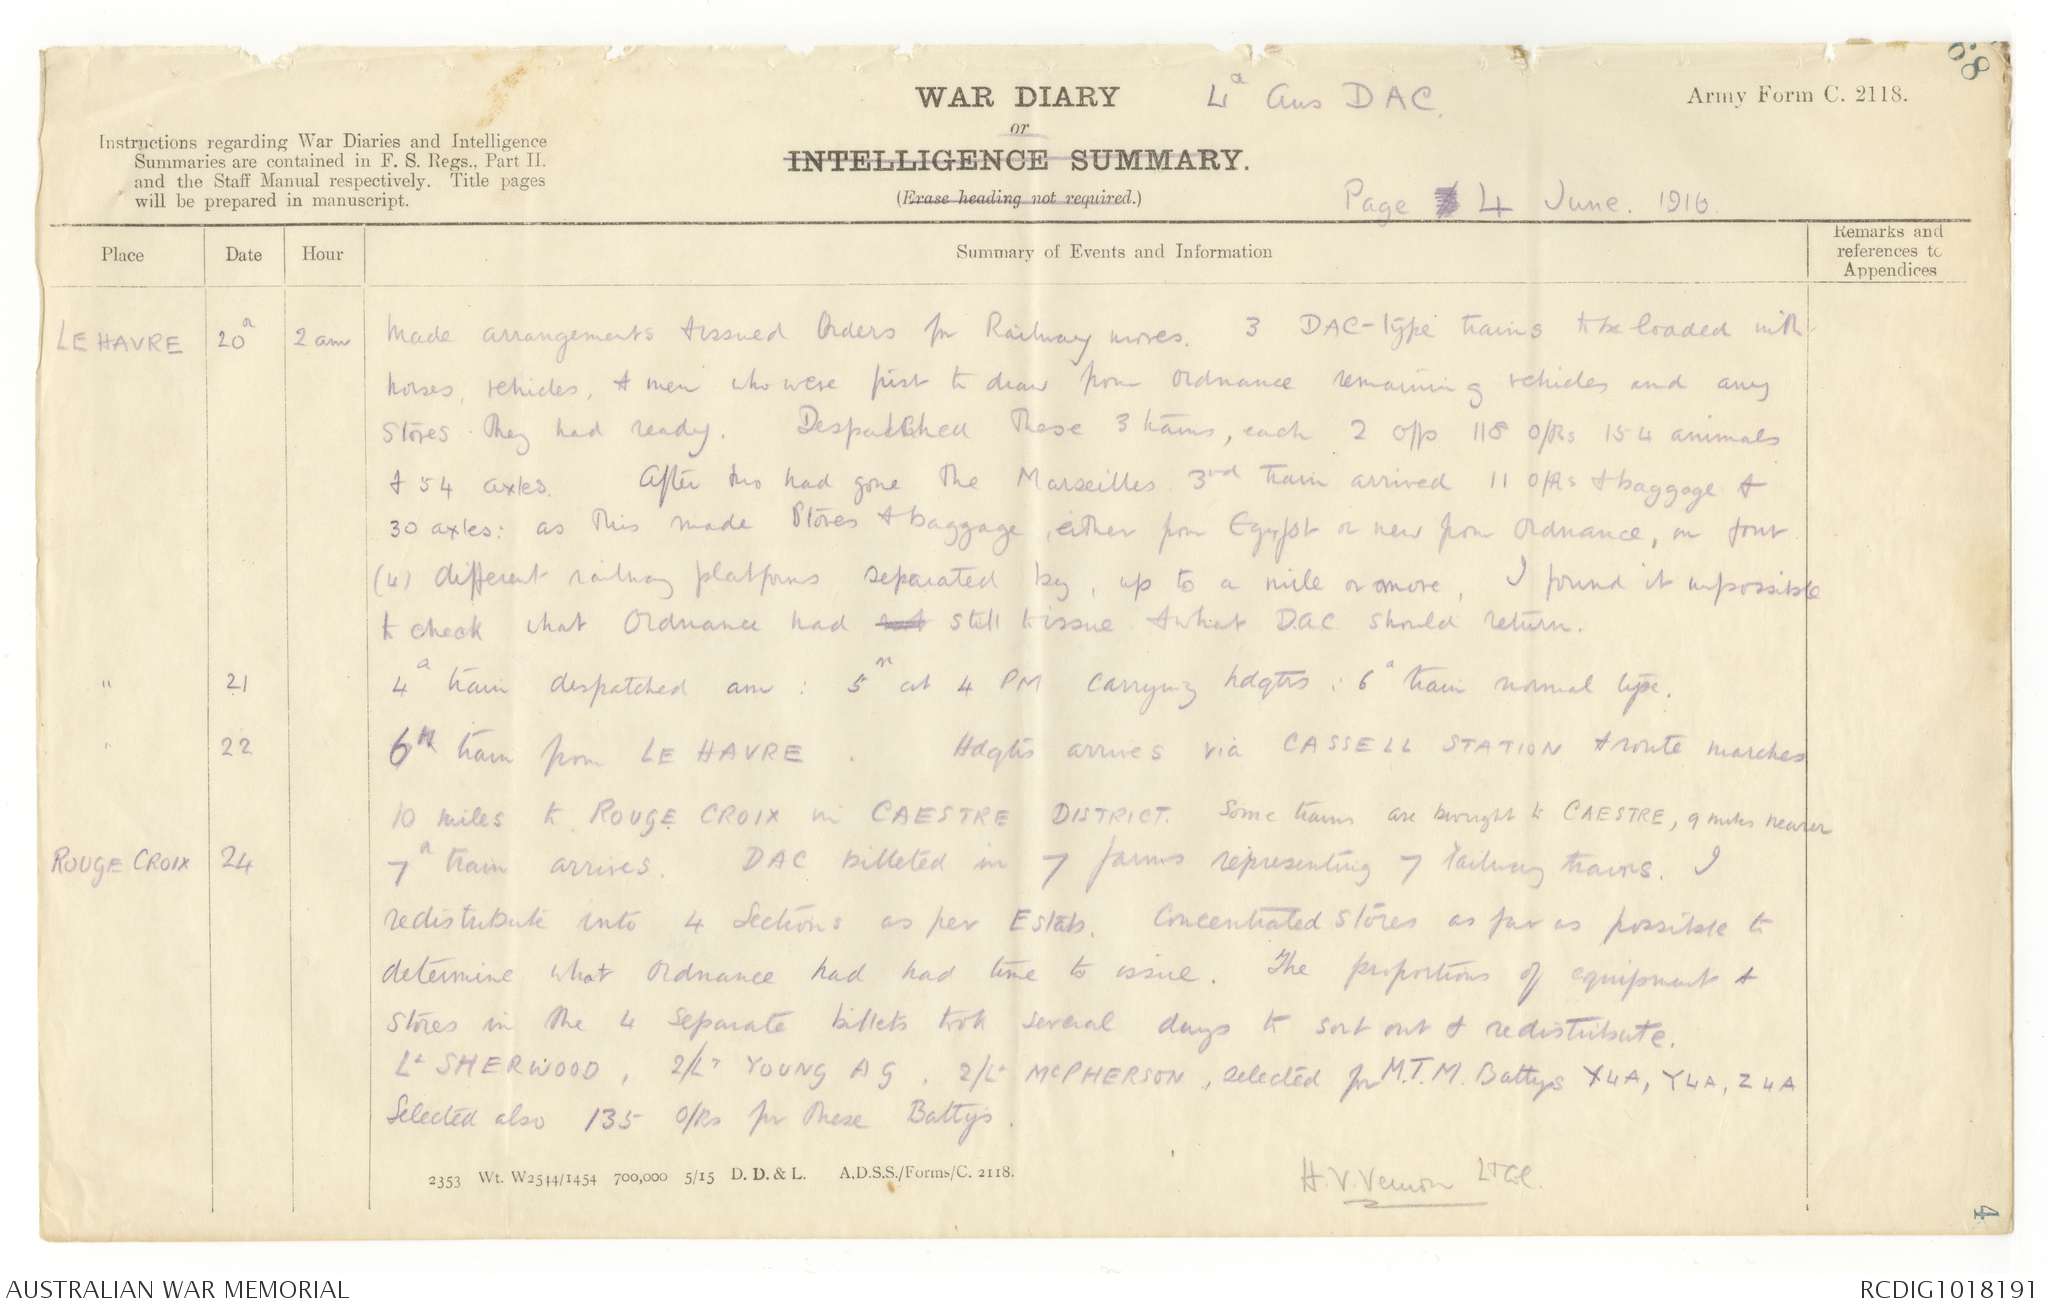 68
WAR DIARY
or
INTELLIGENCE SUMMARY.
(Erase heading not required.)
4th Aus DAC.
Army Form C. 2118.
Instructions regarding War Diaries and Intelligence
Summaries are contained in F. S. Regs., Part II.
and the Staff Manual respectively. Title pages
will be prepared in manuscript.
Page 4 June. 1916.
Place Date Hour Summary of Events and Information Remarks and references to Appendices
LE HAVRE 20th 2 am Made arrangements & issued Orders for Railway moves. 3 DAC-type trains to be loaded with
horses, vehicles, & men who were first to draw from Ordnance remaining vehicles and any
stores they had ready. Despatched these 3 trains, each 2 offs 118 O/Rs 154 animals
& 54 axles. After two had gone the Marseilles 3rd train arrived 11 O/Rs & baggage &
30 axles: as this made stores & baggage, either from Egypt or new from Ordnance, on four
(4) different railway platforms separated by, up to a mile or more, I found it impossible
to check what Ordnance had still to issue & what D.A.C. should return.
" 21 4th train despatched am : 5th at 4 PM carrying hdqtrs : 6th train normal type.
" 22 6th train from LE HAVRE. Hdqtrs arrives via CASSELL STATION & route marches
10 miles to ROUGE CROIX in CAESTRE DISTRICT. Some trains are brought to CAESTRE, 9 miles nearer
ROUGE CROIX 24 7th train arrives. DAC billeted in 7 farms representing 7 railway trains. I
redistribute into 4 Sections as per Estab. Concentrated stores as far as possible to
determine what Ordnance had had time to issue. The proportions of equipment &
stores in the 4 separate billets took several days to sort out & redistribute.
Lt SHERWOOD, 2/Lt YOUNG A G, 2/Lt McPHERSON, selected for M.T.M. Battys X4A, Y4A, Z4A
Selected also 135 O/Rs for these Battys.
2353 Wt. W2544/1454 700,000 5/15 D. D. & L. A.D.S.S./Forms/C. 2118.
H.V. Vernon Lt Col.
4
AUSTRALIAN WAR MEMORIAL
RCDIG1018191